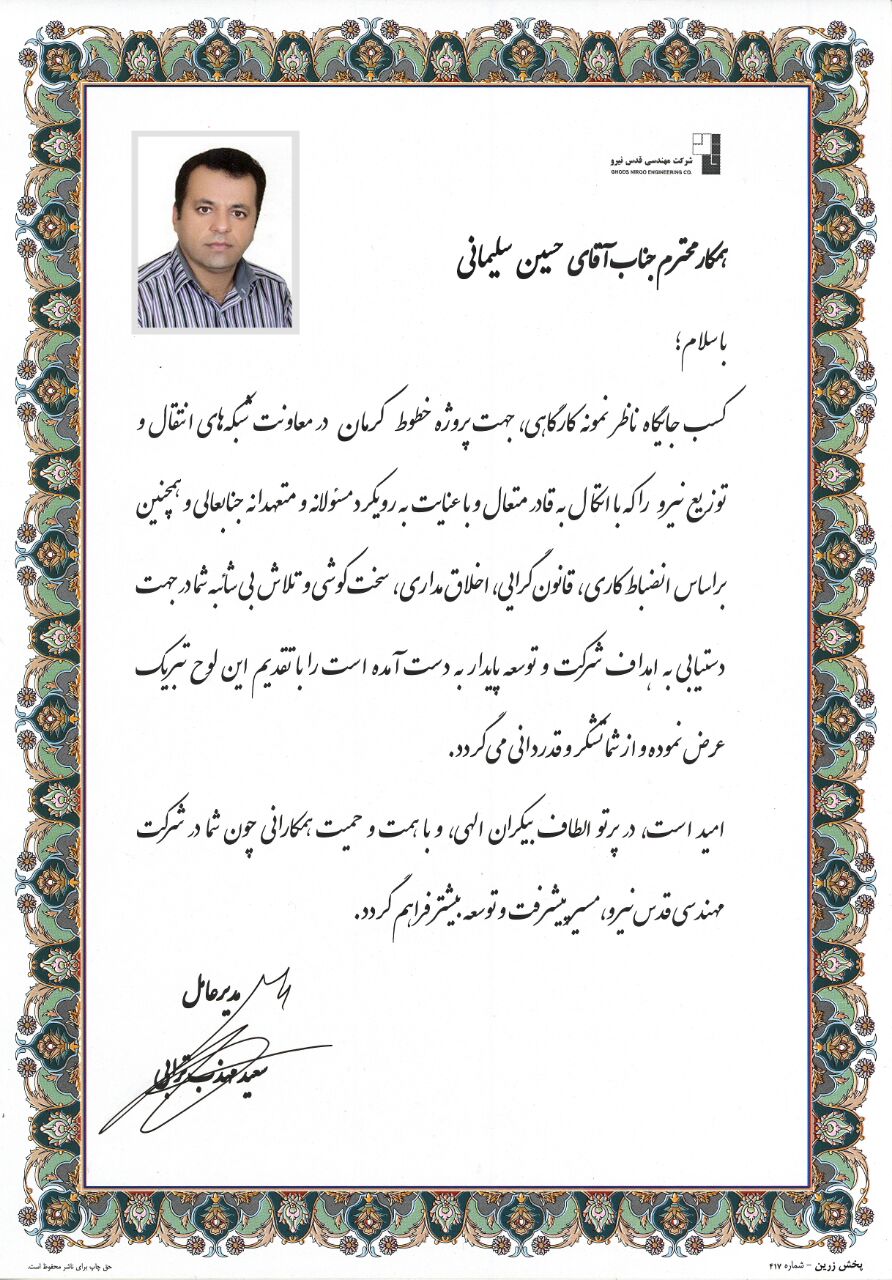 شرکت مهندسی قدس نیرو
GHODS NIROO ENGINEERING CO.
همکار محترم جناب آقای حسین سلیمانی
با سلام؛
کسب جایگاه ناظر نمونه کارگاهی، جهت پروژه خطوط کرمان در معاونت شبکه‌های انتقال و
توزیع نیرو را که با اتکال به قادر متعال و با عنایت به رویکرد مسئولانه و متعهدانه جنابعالی و همچنین
براساس انضباط کاری، قانون گرایی، اخلاق مداری، سخت کوشی و تلاش بی شائبه شما در جهت
دستیابی به اهداف شرکت و توسعه پایدار به دست آمده است را با تقدیم این لوح تبریک
عرض نموده و از شما تشکر و قدردانی می گردد.
امید است، در پرتو الطاف بیکران الهی، و با همت و حمیت همکارانی چون شما در شرکت
مهندسی قدس نیرو، مسیر پیشرفت و توسعه بیشتر فراهم گردد.
مدیرعامل
سعید مهذب ترابی
پخش زرین - شماره ۴۱۷
حق چاپ برای ناشر محفوظ است.